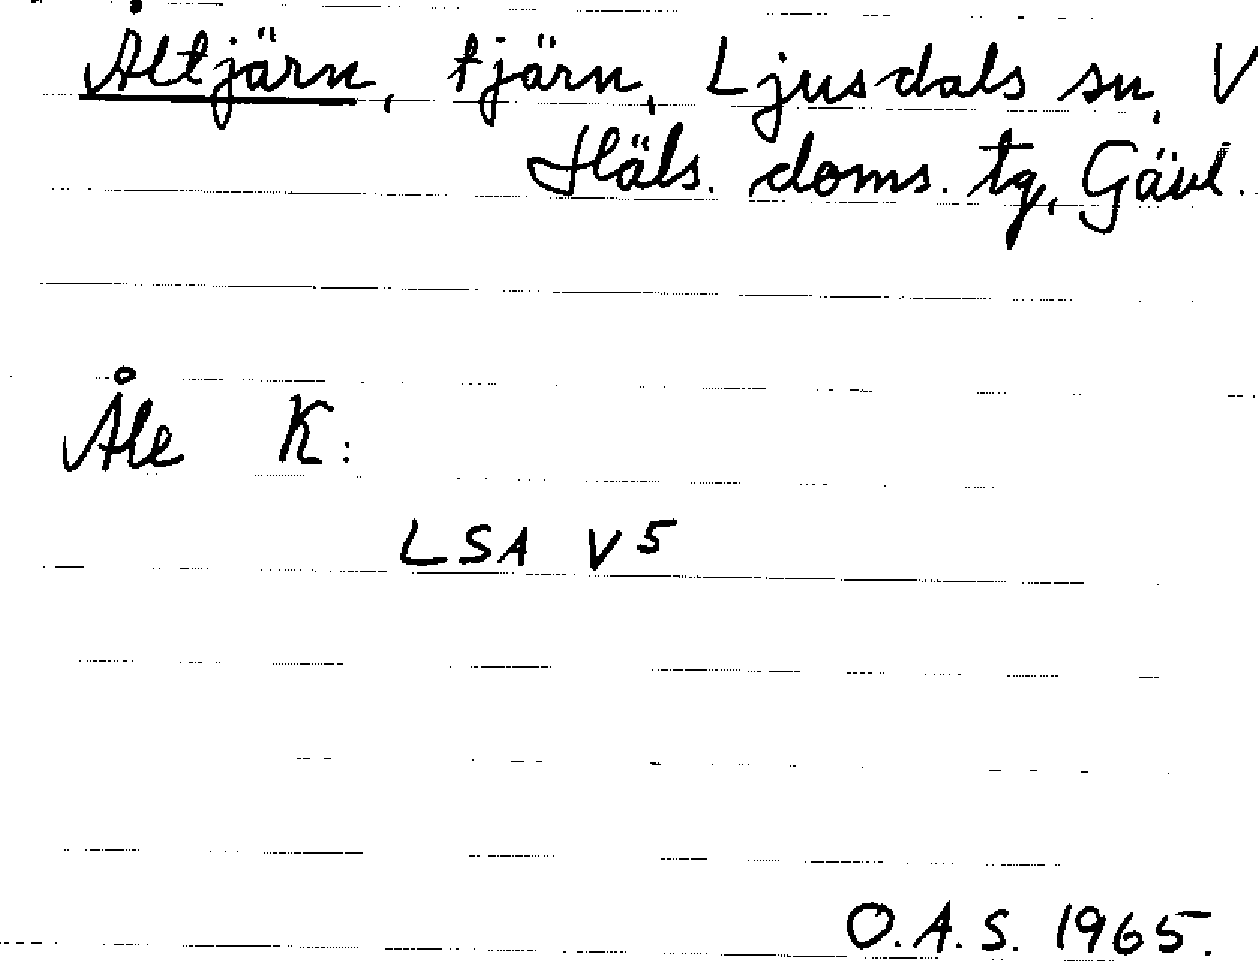 Åltjärn, tjärn, Ljusdals sn, V
Häls. doms. tg, Gävl.
Åle K:
LSA V5
O.A.S. 1965.